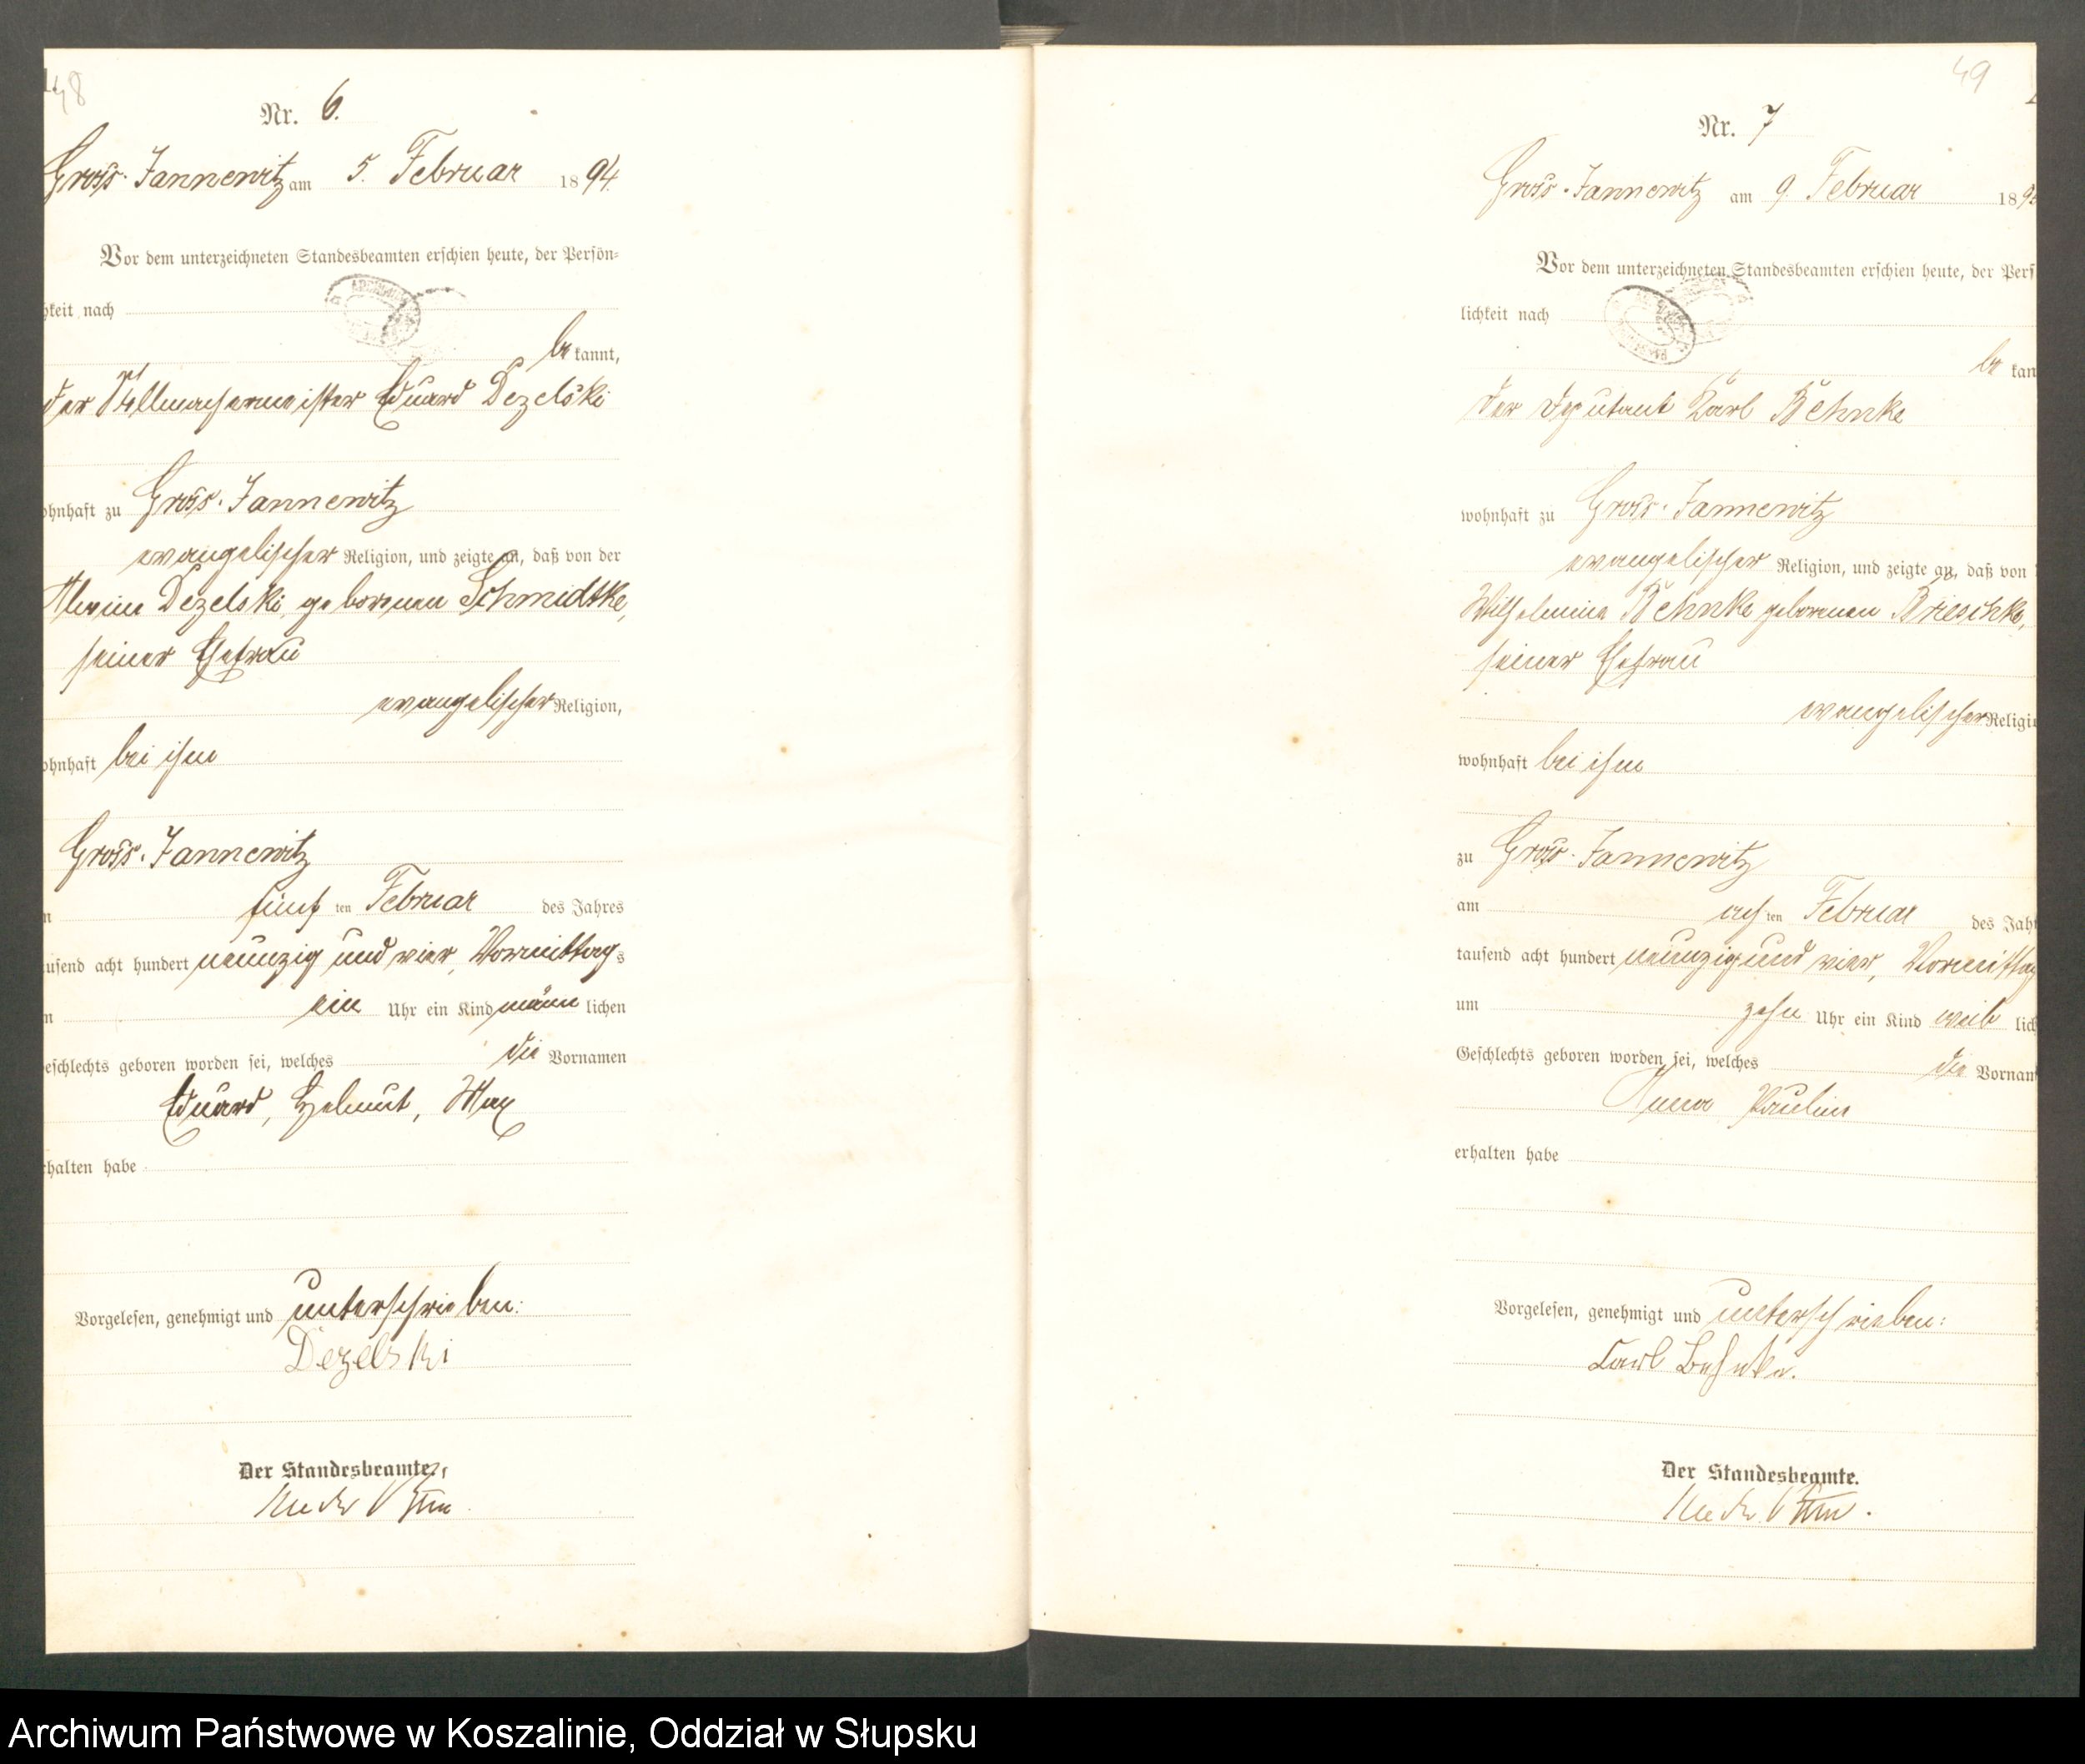 48
Nr. 6.
Gross-Jannewitz am 5. Februar 1894.
Vor dem unterzeichneten Standesbeamten erschien heute, der Persön-
hkeit nach
be kannt,
der Stellmachermeister Eduard Dezelski
ohnhaft zu Gross-Jannewitz
evangelischer Religion, und zeigte an, daß von der
Dezelski geborenen Schmidtke,
seiner Ehefrau
evangelischer Religion,
ohnhaft bei ihm
Gross-Jannewitz
fünf ten Februar des Jahres
usend acht hundert neunzig und vier, Vormittags
ein Uhr ein Kind männ lichen
eschlechts geboren worden sei, welches die Vornamen
Eduard, Helmut, Max
rhalten habe
Vorgelesen, genehmigt und unterschrieben:
Dezelski
Der Standesbeamte.
49
Nr. 7
Gross-Jannewitz am 9. Februar 189
Vor dem unterzeichneten Standesbeamten erschien heute, der Pers
lichkeit nach
be kan
der Deputant Karl Behnke
wohnhaft zu Gross-Jannewitz
evangelischer Religion, und zeigte an, daß von
Wilhelmine Behnke geborenen Brieschke,
seiner Ehefrau
evangelischer Religi
wohnhaft bei ihm
zu Gross-Jannewitz
am ach ten Februar des Jah
tausend acht hundert neunzig und vier, Vormittag
um zehn Uhr ein Kind weib lich
Geschlechts geboren worden sei, welches die Vornam
Anna Pauline
erhalten habe
Vorgelesen, genehmigt und unterschrieben:
Carl Behnke.
Der Standesbeamte.
Archiwum Państwowe w Koszalinie, Oddział w Słupsku